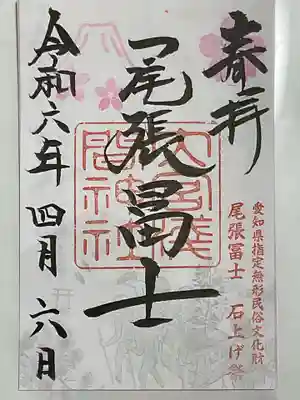 奉拝
愛知県指定無形民俗文化財
尾張冨士 石上げ祭
尾張冨士
大宮浅
間神社
令和六年 四月 六日